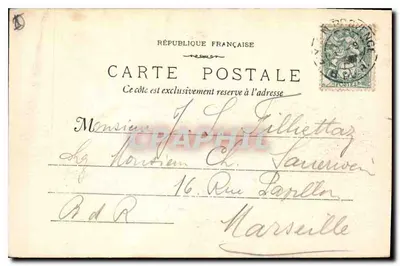 RÉPUBLIQUE FRANÇAISE
CARTE POSTALE
Ce côté est exclusivement réservé à l'adresse
Monsieur J. L. Filliettaz
chez Monsieur Ch. Sauerwein
16. Rue Papillon
B d R
Marseille